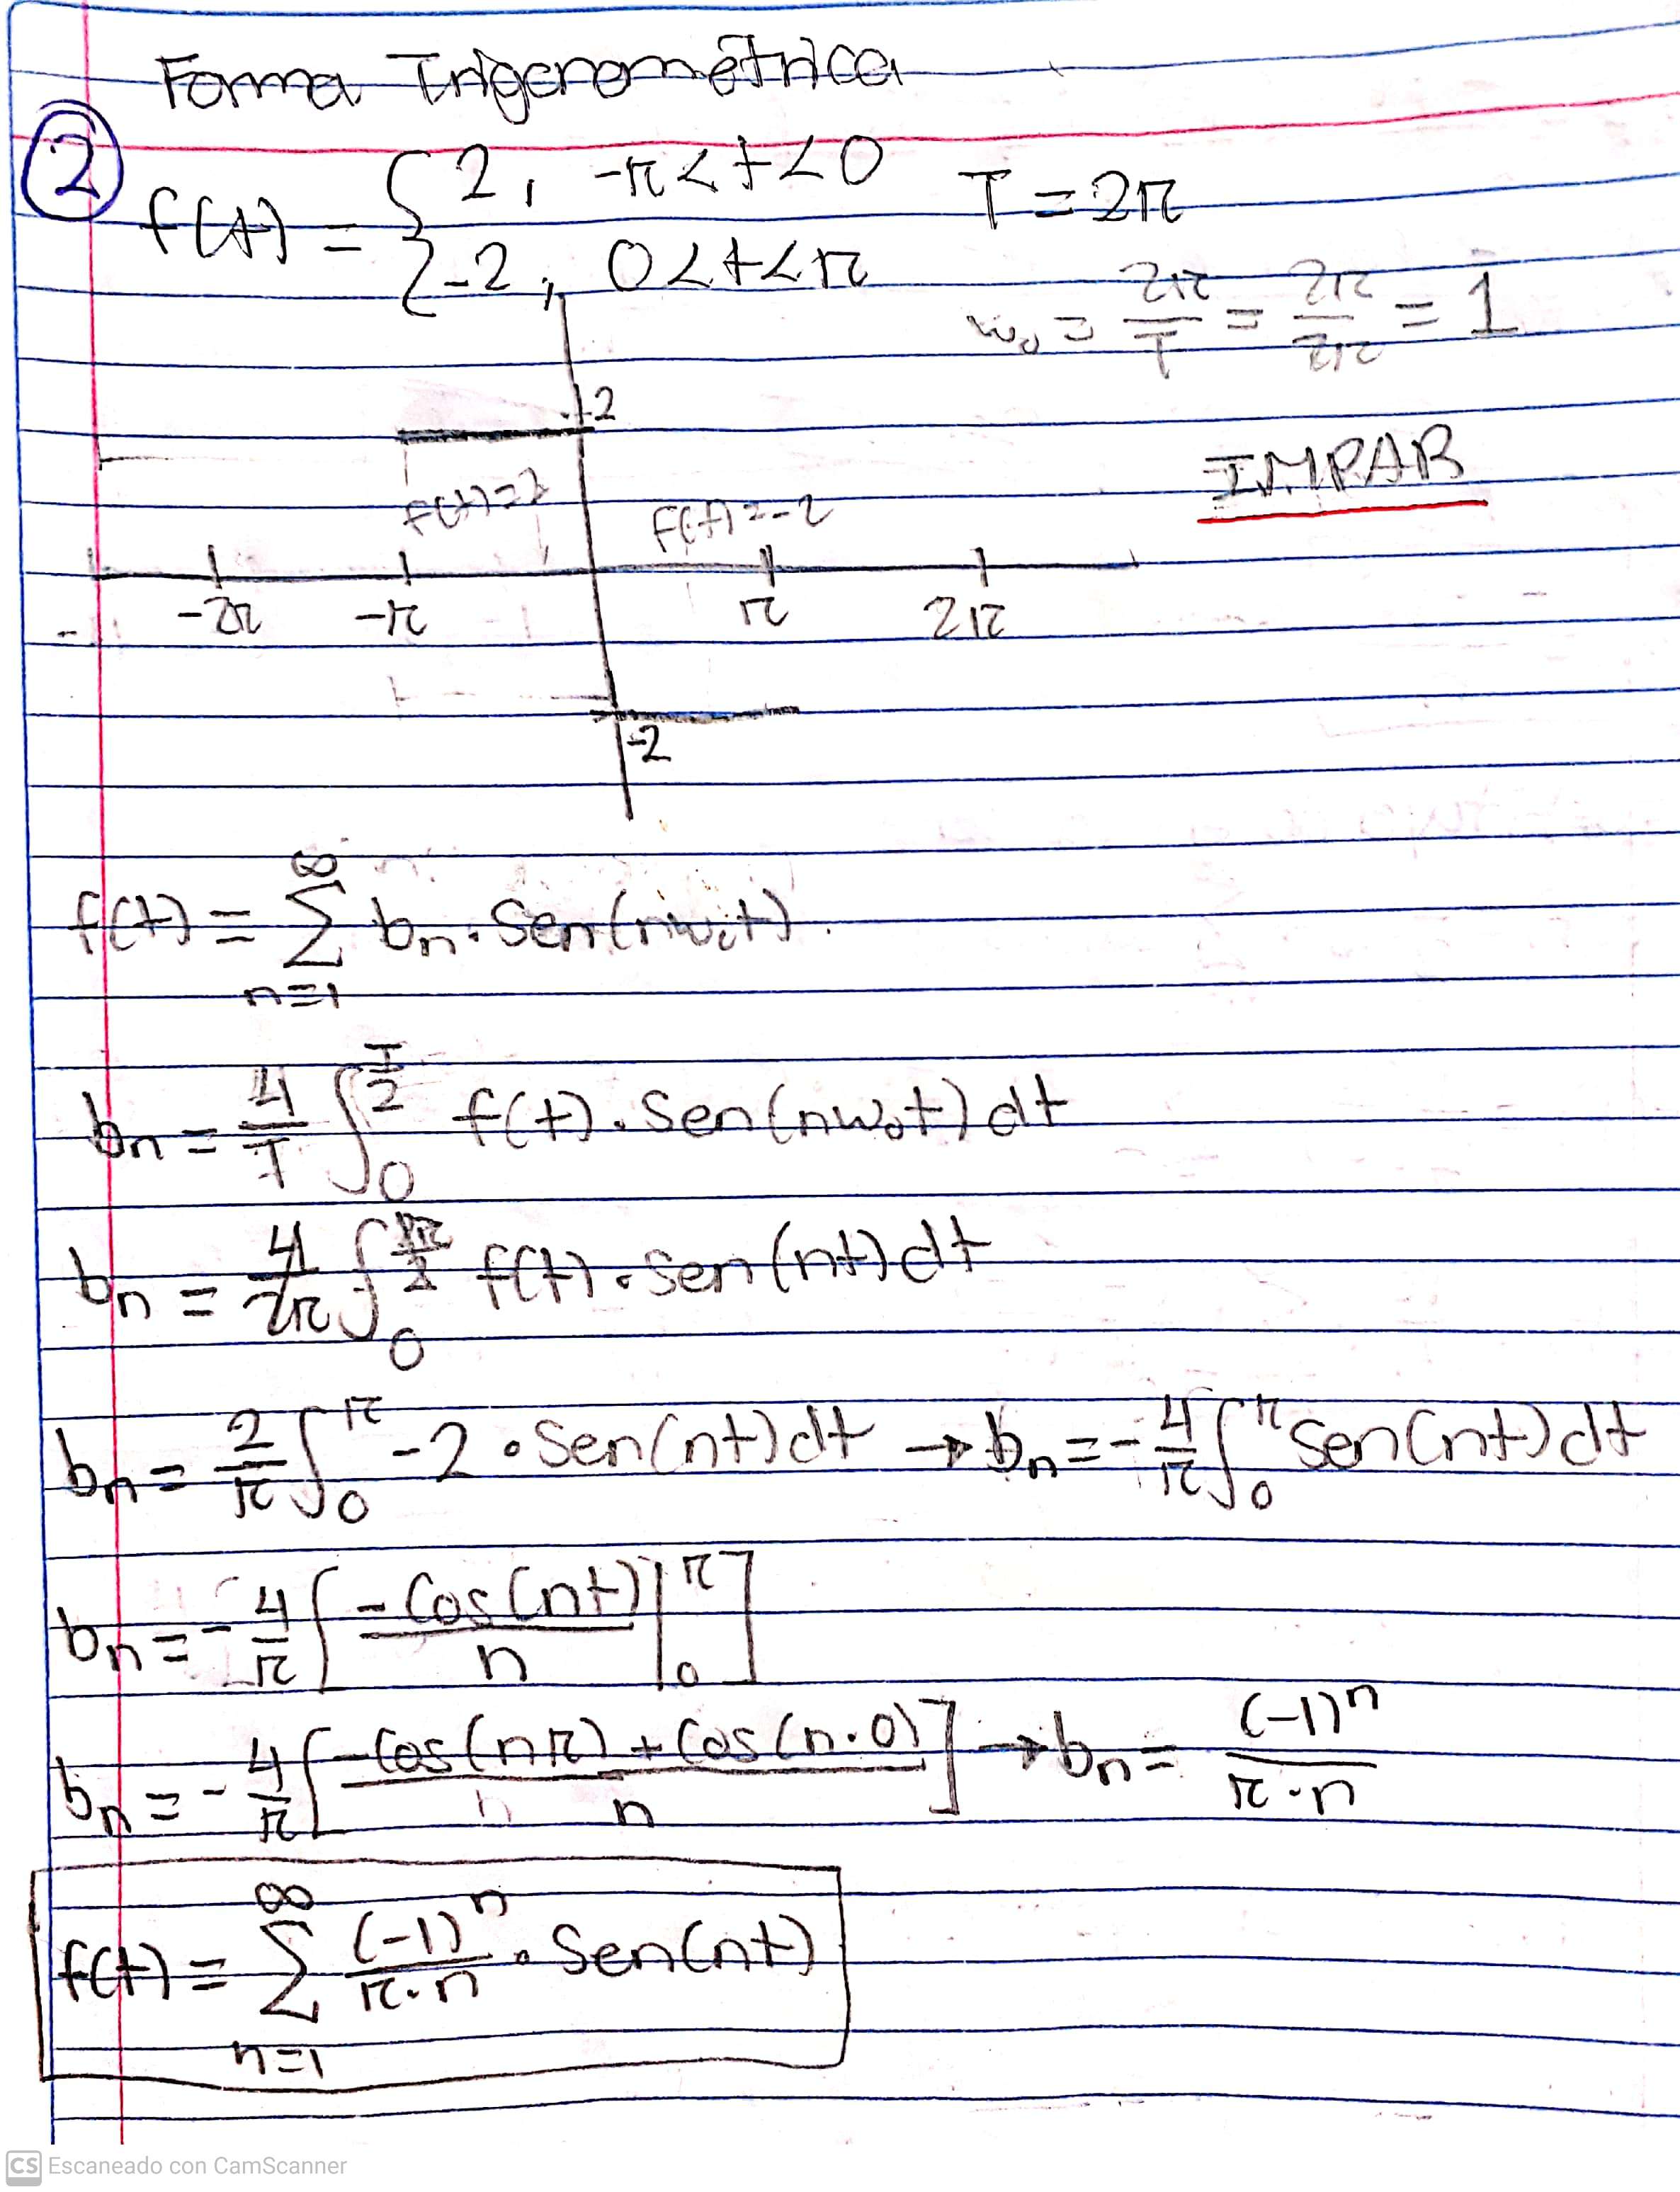 Forma Trigonométrica
② f(t) = { 2, -π<t<0 T = 2π
-2, 0<t<π
w₀ = 2π/T = 2π/2π = 1
2
IMPAR
f(t)=2 f(t)=-2
-2π -π π 2π
-2
f(t) = ∑_{n=1}^{∞} bn · Sen(nw₀t)
bn = 4/T ∫_0^{T/2} f(t) · Sen(nw₀t) dt
bn = 4/2π ∫_0^{2π/2} f(t) · Sen(nt) dt
bn = 2/π ∫_0^π -2 · Sen(nt) dt → bn = -4/π ∫_0^π Sen(nt) dt
bn = -4/π [ -Cos(nt)/n |_0^π ]
bn = -4/π [ (-Cos(nπ) + Cos(n·0))/n ] → bn = (-1)^n/(π·n)
f(t) = ∑_{n=1}^{∞} (-1)^n/(π·n) · Sen(nt)
CS Escaneado con CamScanner